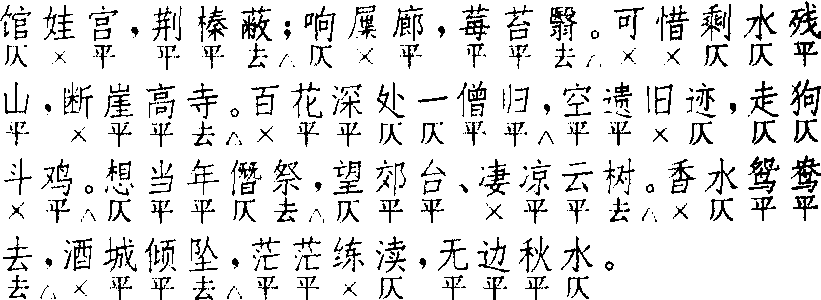 馆娃宫，荆榛蔽；响屧廊，莓苔翳。可惜剩水残
仄 × 平 平 平 去 △ 仄 × 平 平 平 去 △ × × 仄 仄 平
山，断崖高寺。百花深处一僧归，空遗旧迹，走狗
平 × 平 平 去 △ × 平 平 仄 仄 平 平 △ 平 平 × 仄 仄 仄
斗鸡。想当年僭祭，望郊台、凄凉云树。香水鸳鸯
× 平 △ 仄 平 平 仄 去 △ 仄 平 平 × 平 平 去 △ × 仄 平 平
去，酒城倾坠，茫茫练渎，无边秋水。
去 △ × 平 平 去 △ 平 平 × 仄 平 平 平 仄